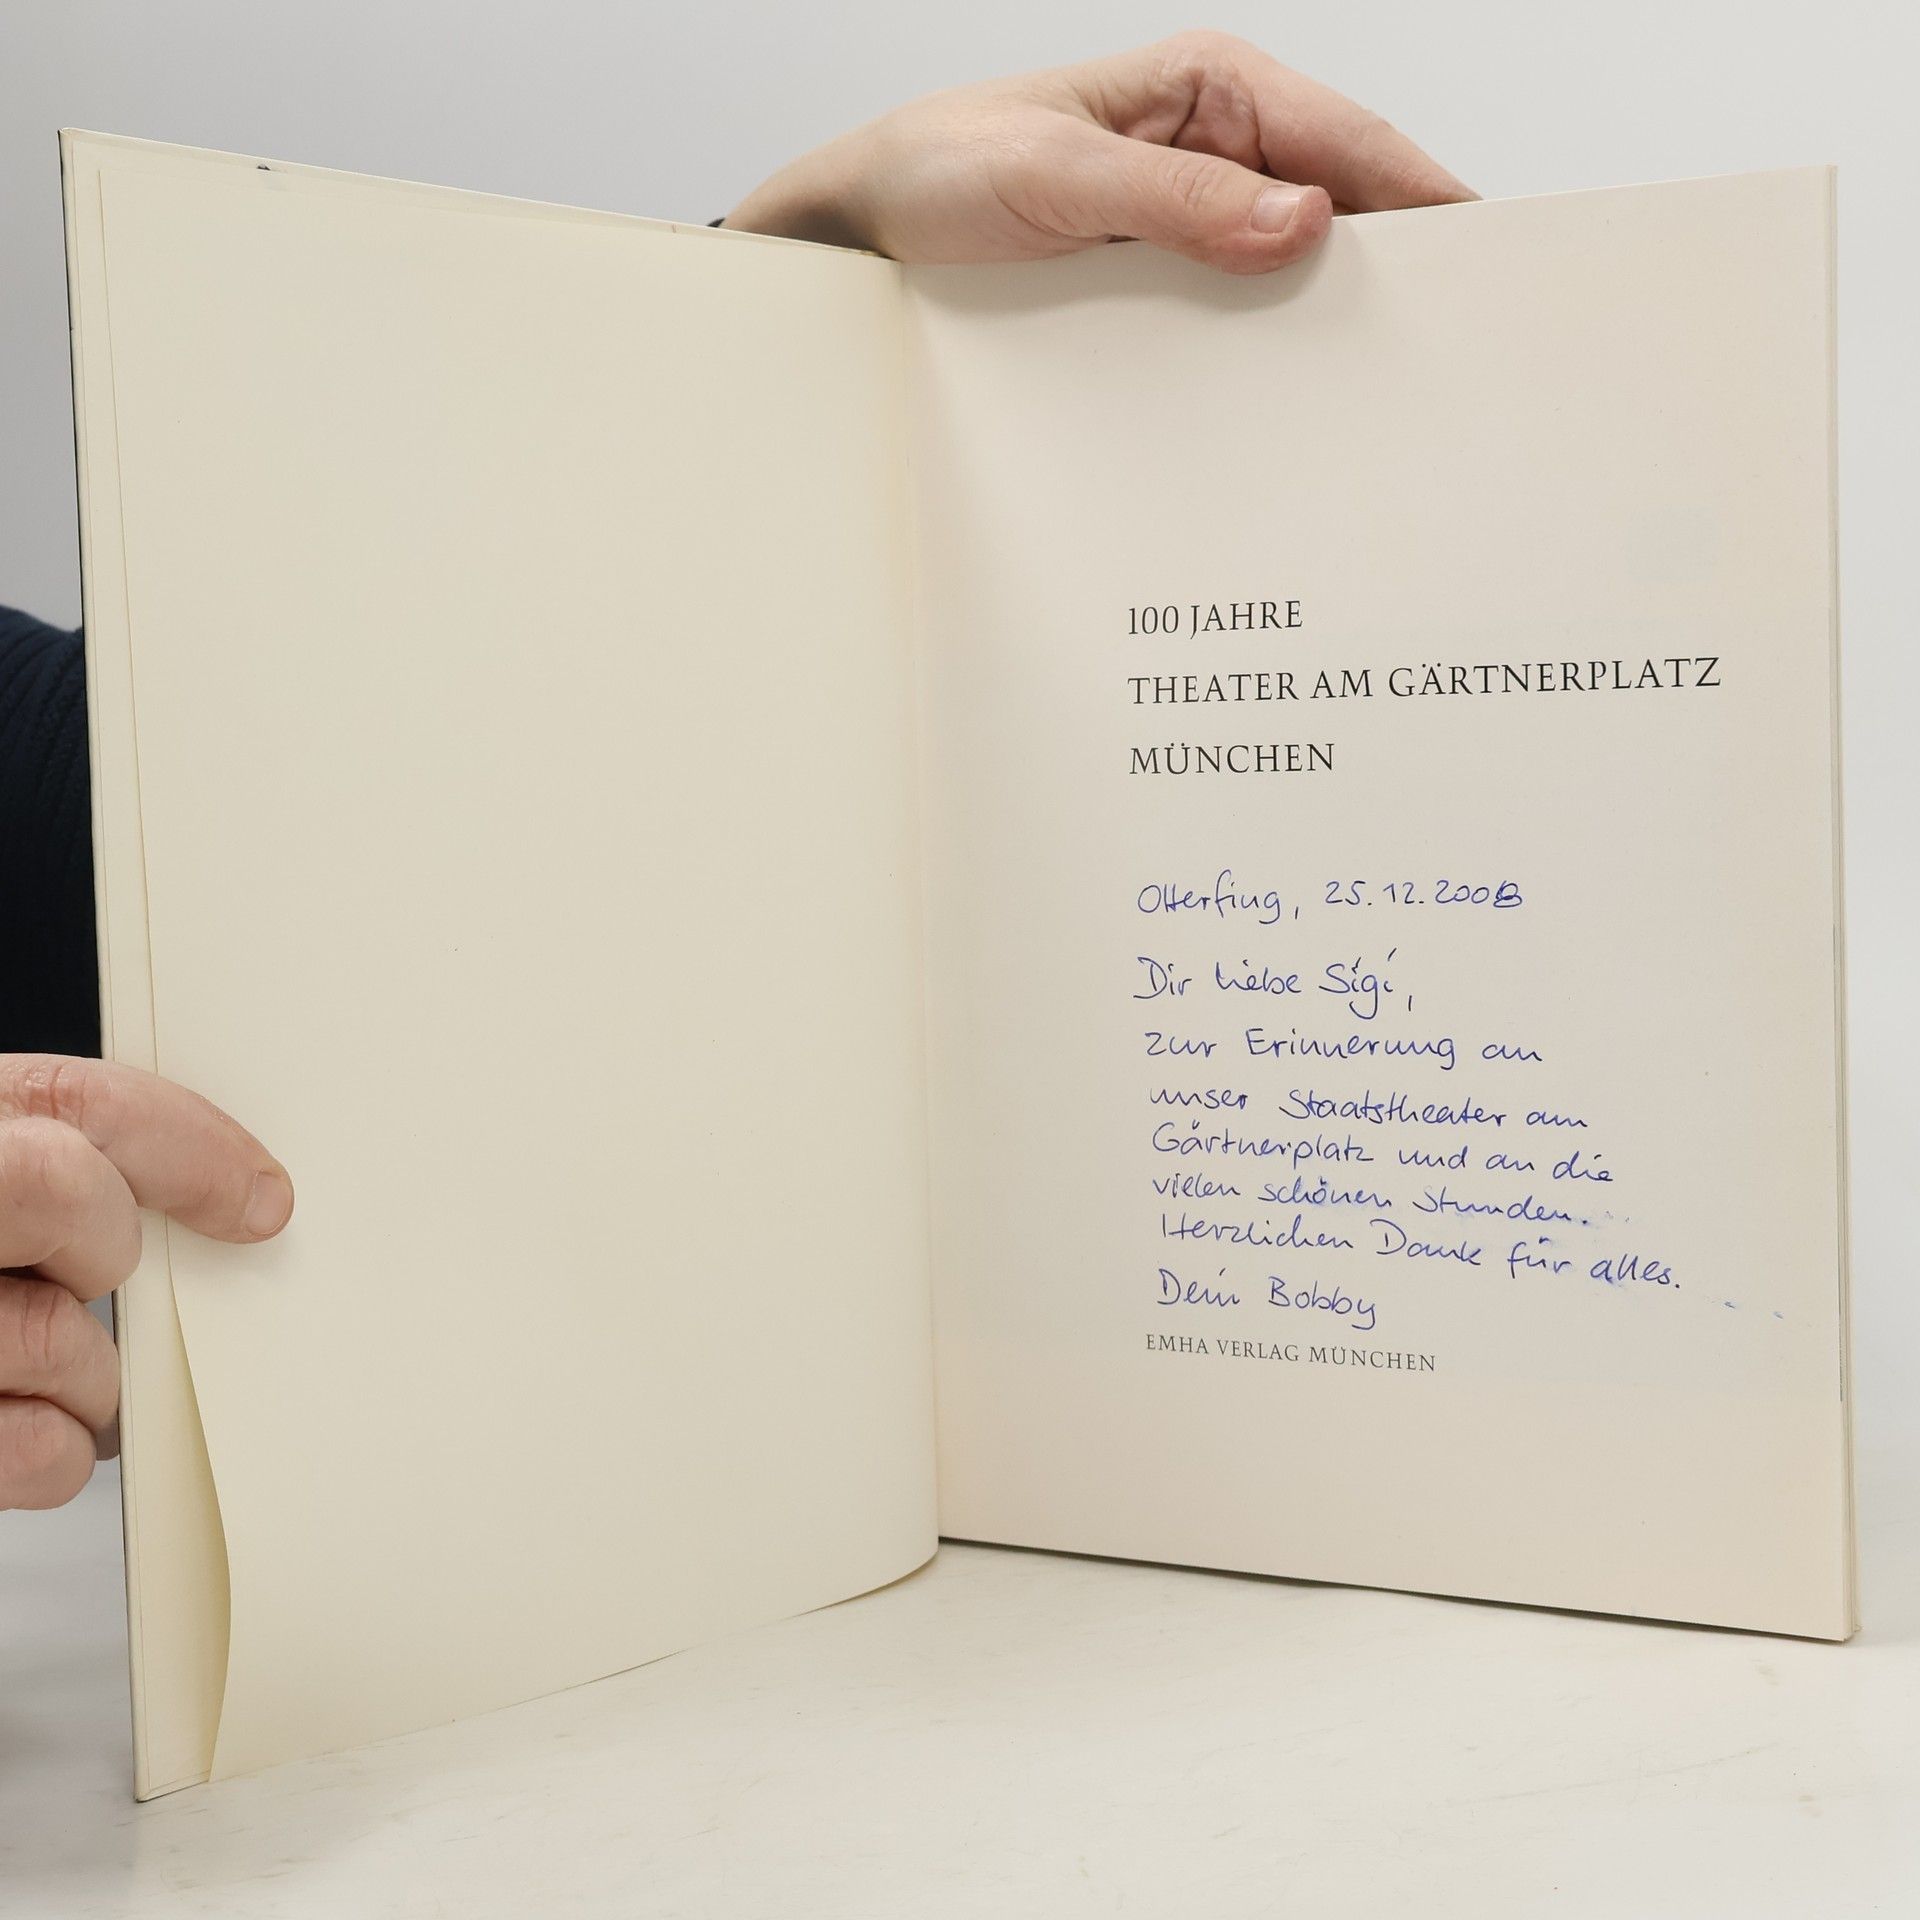 100 JAHRE
THEATER AM GÄRTNERPLATZ
MÜNCHEN
Otterfing, 25.12.2008
Dir liebe Sigi,
zur Erinnerung an
unser Staatstheater am
Gärtnerplatz und an die
vielen schönen Stunden.
Herzlichen Dank für alles.
Dein Bobby
EMHA VERLAG MÜNCHEN